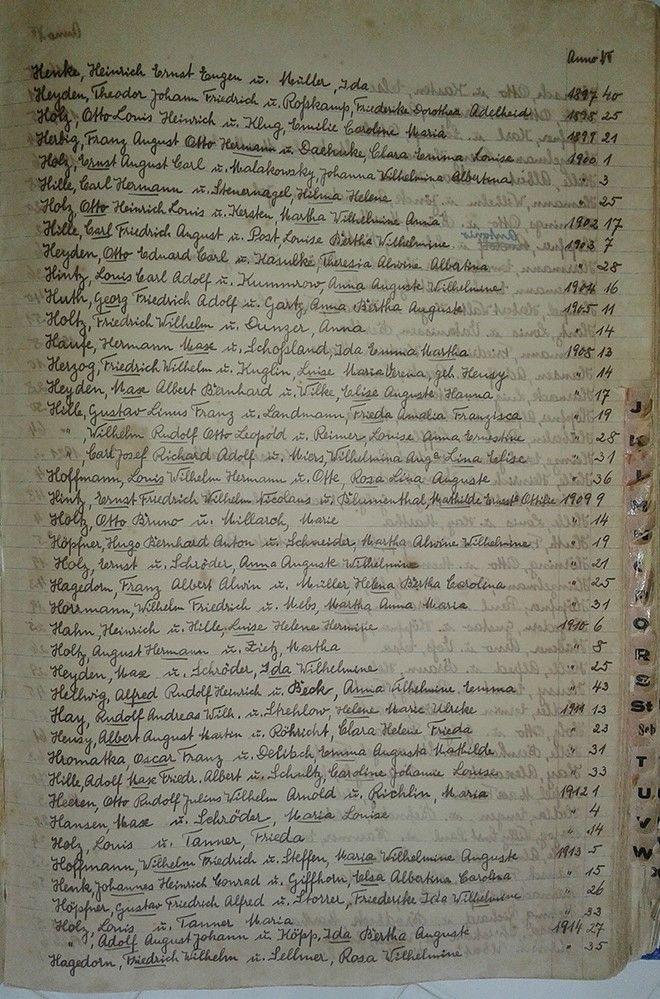 Anno №
Henke, Heinrich Ernst Eugen u. Müller, Ida 1897 40
Heyden, Theodor Johann Friedrich u. Roßkamp, Friederike Dorothea Adelheid 1898 25
Holz, Otto Louis Heinrich u. Klug, Emilie Caroline Maria 1899 21
Herbig, Franz August Otto Hermann u. Daehnke, Clara Emma Louise 1900 1
Holz, Ernst August Carl u. Malakowsky, Johanna Wilhelmina Albertina " 3
Hille, Carl Hermann u. Steuernagel, Hilma Helene " 25
Holz, Otto Heinrich Louis u. Kersten, Martha Wilhelmine Anna 1902 17
Hille, Carl Friedrich August u. Post Louise Bertha Wilhelmine Antonie 1903 7
Heyden, Otto Eduard Carl u. Hasulke Theresia Alwine Albertina " 28
Hintz, Louis Carl Adolf u. Kummrow, Anna Auguste Wilhelmine 1904 16
Huth, Georg Friedrich Adolf u. Gartz, Anna Bertha Auguste 1905 11
Holtz, Friedrich Wilhelm u. Dunzer, Anna " 14
Hanse, Hermann Max u. Schoßland, Ida Emma Martha 1908 13
Herzog, Friedrich Wilhelm u. Kuglin, Luise Maria Verena, geb. Heusy " 14
Heyden, Max Albert Bernhard u. Wilke, Elise Auguste Hanna " 17
Hille, Gustav Linus Franz u. Landmann, Frieda Amalia Franzisca " 19
" Wilhelm Rudolf Otto Leopold u. Reimer, Louise Anna Ernestine " 28
" Carl Josef Richard Adolf u. Miers Wilhelmina Aug^a Lina Elise " 31
Hoffmann, Louis Wilhelm Hermann u. Otte, Rosa Lina Auguste " 36
Hintz, Ernst Friedrich Wilhelm Nicolaus u. Blumenthal, Mathilde Ernest^e Ottilie 1909 9
Holtz, Otto Bruno u. Millarch, Marie " 14
Höpfner Hugo Bernhard Anton u. Schneider, Martha Alwine Wilhelmine " 19
Holz, Ernst u. Schröder, Anna Auguste Wilhelmine " 21
Hagedorn, Franz Albert Alwin u. Müller, Helena Bertha Carolina " 25
Horrmann, Wilhelm Friedrich u. Mebs, Martha Anna Maria " 31
Hahn, Heinrich u. Hille, Luise Helene Hermine 1910 6
Holtz, August Hermann u. Zietz, Martha " 8
Heyden, Max u. Schröder, Ida Wilhelmine " 25
Hellwig, Alfred Rudolf Heinrich u. Beck, Anna Wilhelmine Emma " 43
Hay, Rudolf Andreas Wilh. u. Strehlow, Helene Marie Ulrike 1911 13
Heusy, Albert August Marten u. Röhricht, Clara Helene Frieda " 23
Hromatka Oscar Franz u. Delitsch Emma Augusta Mathilde " 31
Hille, Adolf Max Friedr. Albert u. Schultz, Caroline Johanne Louise " 33
Heeren, Otto Rudolf Julius Wilhelm Arnold u. Richlin, Maria 1912 1
Hansen, Max u. Schröder, Maria Louise " 4
Holz, Louis u. Tanner, Frieda " 14
Hoffmann, Wilhelm Friedrich u. Steffen, Maria Wilhelmine Auguste 1913 5
Henk, Johannes Heinrich Conrad u. Giffhorn, Elsa Albertina Carolina " 15
Höpfner, Gustav Friedrich Alfred u. Storrer, Friederike Ida Wilhelmine " 26
Holz, Louis u. Tanner Maria " 33
" , Adolf August Johann u. Köpp, Ida Bertha Auguste 1914 27
Hagedorn, Friedrich Wilhelm u. Sellmer, Rosa Wilhelmine " 35
J
K
L
M
N
O
R
S
St
Sch
T
U
V
W